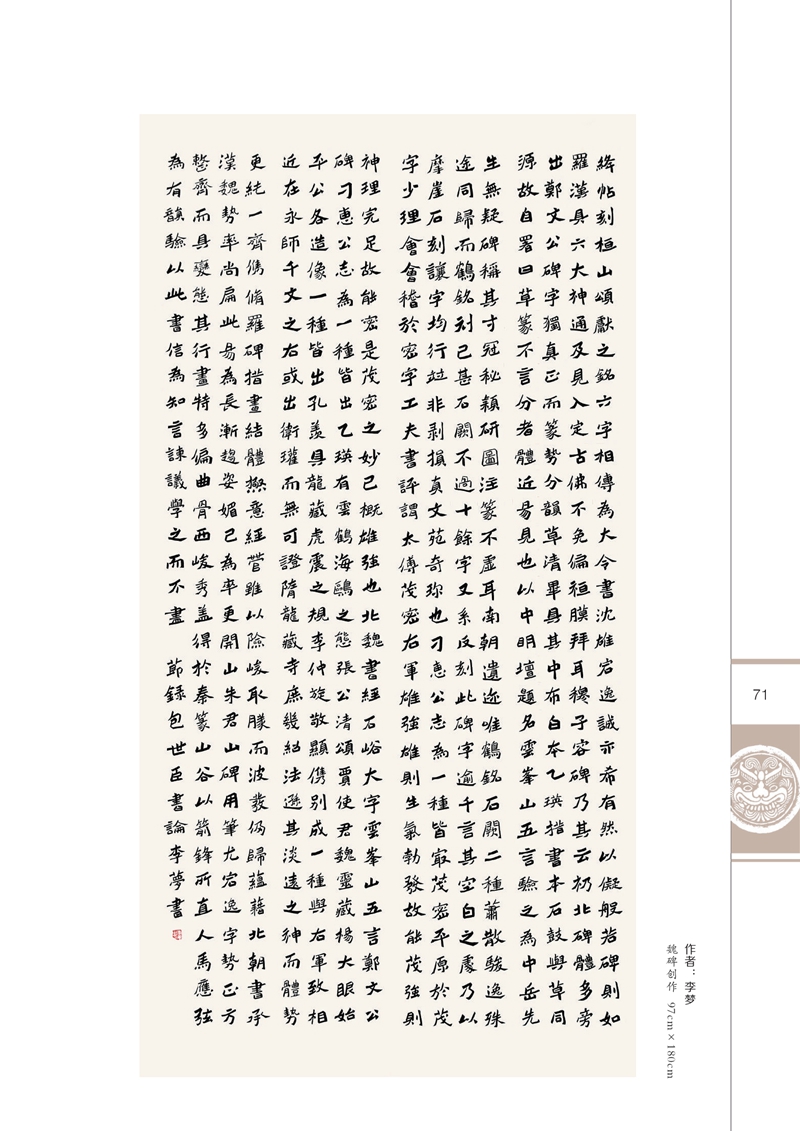 絳帖刻桓山頌獻之銘六字相傳為大令書沈雄宕逸誠亦希有然以儗般若碑則如
羅漢具六大神通及見入定古佛不免偏袒膜拜耳穆子容碑乃其云礽北碑體多旁
出鄭文公碑字獨真正而篆勢分韻草情畢具其中布白本乙瑛措畫本石鼓與草同
源故自署曰草篆不言分者體近易見也以中明壇題名雲峯山五言驗之為中岳先
生無疑碑稱其才冠秘穎研圖注篆不虛耳南朝遺迹唯鶴銘石闕二種蕭散駿逸殊
途同歸而鶴銘刓已甚石闕不過十餘字又系反刻此碑字逾千言其空白之處乃以
摩崖石刻讓字均行並非剥損真文苑奇珍也刁惠公志為一種皆㝡茂密平原於茂
字少理會會稽於密字工夫書評謂太傅茂密右軍雄強雄則生氣勃發故能茂強則
神理完足故能密是茂密之妙已概雄強也北魏書經石峪大字雲峯山五言鄭文公
碑刁惠公志為一種皆出乙瑛有雲鶴海鷗之態張公清頌賈使君魏靈藏楊大眼始
平公各造像一種皆出孔羨具龍藏虎震之規李仲旋敬顯儁別成一種與右軍致相
近在永師千文之右或出衛瓘而無可證隋龍藏寺庶幾紹法遜其淡遠之神而體勢
更純一齊儁脩羅碑措畫結體檄意經營雖以險峻取勝而波發仍歸蘊藉北朝書承
漢魏勢率尚扁此易為長漸趨姿媚已為率更開山朱君山碑用筆尤宕逸字勢正方
整齊而具變態其行畫特多偏曲骨西峻秀盖得於秦篆山谷以箭鋒所直人馬應弦
為有韻驗以此書信為知言諫議學之而不盡 節錄包世臣書論李夢書
71
作者：李梦
魏碑创作 97cm×180cm